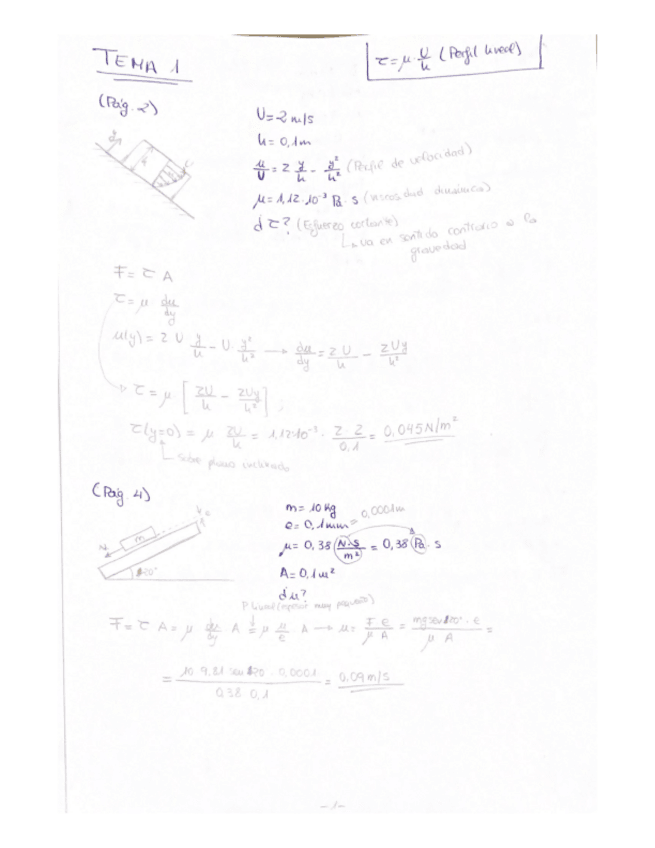 TEMA 1
τ = μ · U/h (Perfil lineal)
(Pág. 2)
U = 2 m/s
h = 0,1 m
u/U = 2 y/h - y²/h² (Perfil de velocidad)
μ = 1,12·10⁻³ Pa · s (viscosidad dinámica)
d τ? (Esfuerzo cortante)
va en sentido contrario a la
gravedad
F = τ A
τ = μ · du/dy
u(y) = 2 U y/h - U · y²/h² → du/dy = 2U/h - 2Uy/h²
τ = μ · [2U/h - 2Uy/h²]
τ(y=0) = μ 2U/h = 1,12·10⁻³ · 2·2/0,1 = 0,045 N/m²
sobre plano inclinado
(Pág. 4)
m = 10 kg
e = 0,1 mm = 0,0001 m
μ = 0,38 N·s/m² = 0,38 Pa · s
A = 0,1 m²
d u?
m
20°
P lineal (espesor muy pequeño)
F = τ A = μ · du/dy A = μ u/e · A → u = F e/μ A = mg sen 20° · e/μ A =
= 10 · 9,81 sen 20 · 0,0001/0,38 · 0,1 = 0,09 m/s
-1-